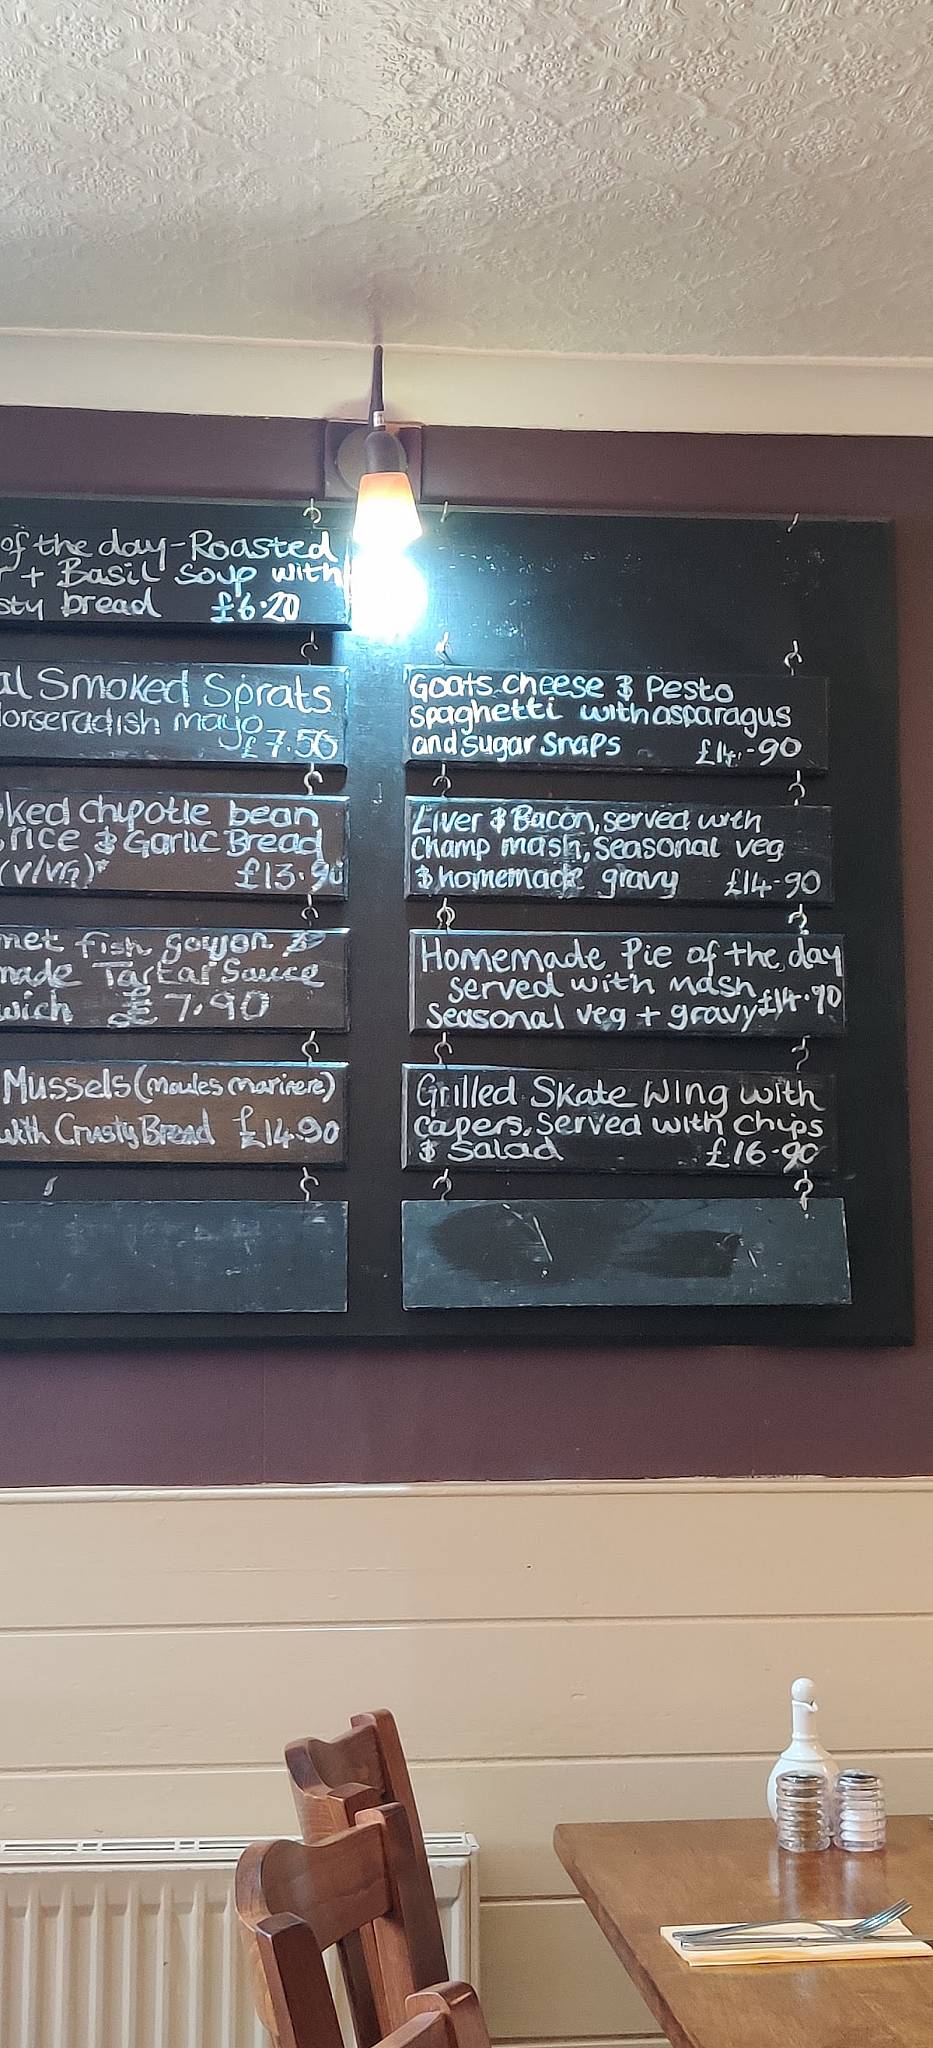 of the day-Roasted
r + Basil Soup with
sty bread £6.20
al Smoked Sprats
Horseradish mayo
£7.50
ked chipotle bean
rice & Garlic Bread
(V/VG)* £13.90
met fish goujon &
made Tartar Sauce
wich £7.90
Mussels (moules marinere)
with Crusty Bread £14.90
Goats cheese & Pesto
Spaghetti with asparagus
and sugar snaps £14.90
Liver & Bacon, served with
Champ mash, seasonal veg
& homemade gravy £14-90
Homemade Pie of the day
served with mash
seasonal veg + gravy £14.90
Grilled Skate Wing with
capers. Served with chips
& Salad £16-90